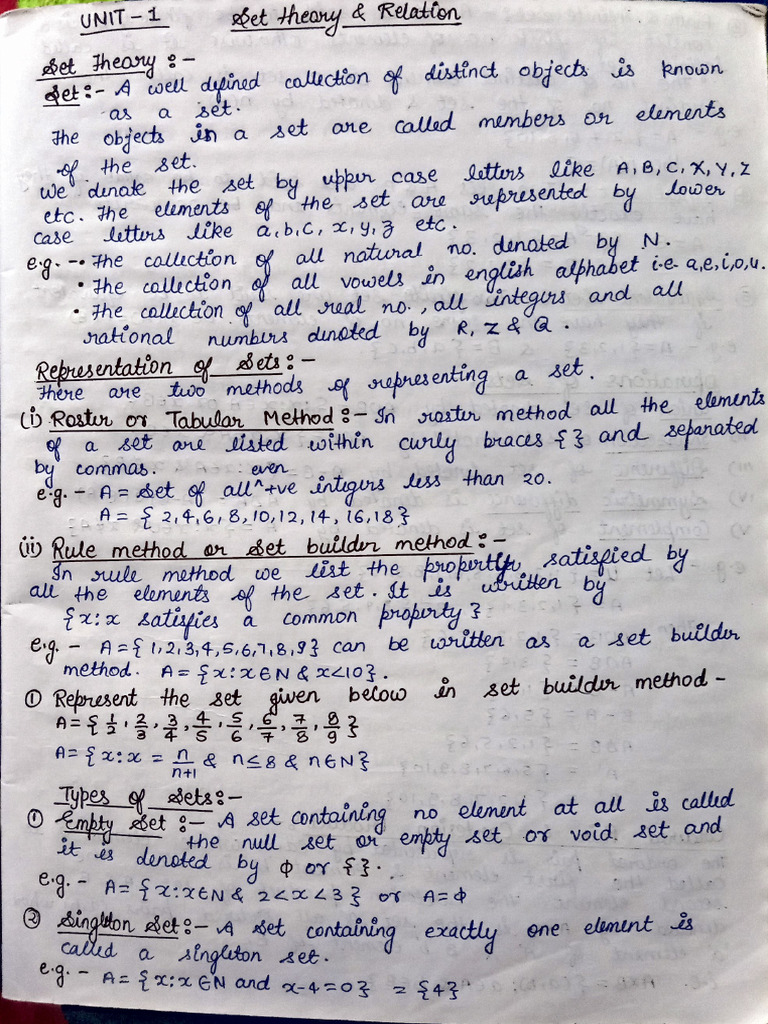 UNIT-1 Set theory & Relation
Set Theory:-
Set:- A well defined collection of distinct objects is known
as a set.
The objects in a set are called members or elements
of the set.
We denote the set by upper case letters like A, B, C, X, Y, Z
etc. The elements of the set are represented by lower
case letters like a, b, c, x, y, z etc.
e.g. -• The collection of all natural no. denoted by N.
• The collection of all vowels in english alphabet i.e a, e, i, o, u.
• The collection of all real no., all integers and all
rational numbers denoted by R, Z & Q.
Representation of Sets:-
There are two methods of representing a set.
(i) Roster or Tabular Method:- In roster method all the elements
of a set are listed within curly braces { } and separated
by commas.
e.g. - A = Set of all ^even +ve integers less than 20.
A = { 2, 4, 6, 8, 10, 12, 14, 16, 18}
(ii) Rule method or Set builder method:-
In rule method we list the property satisfied by
all the elements of the set. It is written by
{x:x satisfies a common property}
e.g. - A={1,2,3,4,5,6,7,8,9} can be written as a set builder
method. A = {x:x∈N & x<10}.
① Represent the set given below in set builder method -
A = { 1/2, 2/3, 3/4, 4/5, 5/6, 6/7, 7/8, 8/9 }
A= {x:x = n/n+1 & n≤8 & n∈N}
Types of Sets:-
① Empty Set:- A set containing no element at all is called
the null set or empty set or void set and
it is denoted by ϕ or { }.
e.g. - A= {x:x∈N & 2<x<3} or A=ϕ
② Singleton Set:- A set containing exactly one element is
called a singleton set.
e.g. - A= {x:x∈N and x-4=0} = {4}